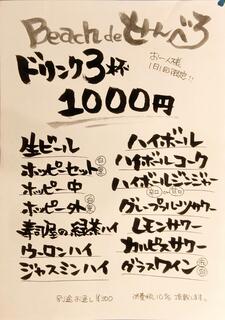 Beach de せんべろ
お一人様
1日1回限定!!
ドリンク3杯
1000円
生ビール
ホッピーセット 白黒
ホッピー中
ホッピー外 白黒
寿司屋の緑茶ハイ
ウーロンハイ
ジャスミンハイ
ハイボール
ハイボールコーク
ハイボールジンジャー
辛口 or 甘口
グレープフルーツサワー
レモンサワー
カルピスサワー
グラスワイン 赤白
別途お通し ¥300
消費税10% 頂戴します。